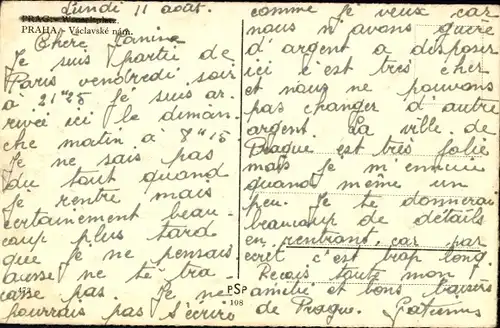 Lundi 11 août.
PRAG. - Wenzelsplatz.
PRAHA - Václavské nám.
Chère Janine
Je suis partie de
Paris vendredi soir
à 21"25 je suis ar-
rivée ici le diman-
che matin à 8"15
Je ne sais pas
du tout quand
je rentre mais
certainement beau-
coup plus tard
que je ne pensais
aussi ne te tra-
casse pas. Je ne
pourrais pas t'écrire
PSP
108
comme je veux car
nous n'avons guère
d'argent a disposer
ici c'est très cher
et nous ne pouvons
pas changer d'autre
argent. La ville de
Prague est très jolie
mais je m'ennuie
quand même un
peu. Je te donnerai
beaucoup de détails
en rentrant, car par
écrit c'est trop long.
Reçois toute mon
amitié et bons baisers
de Prague.